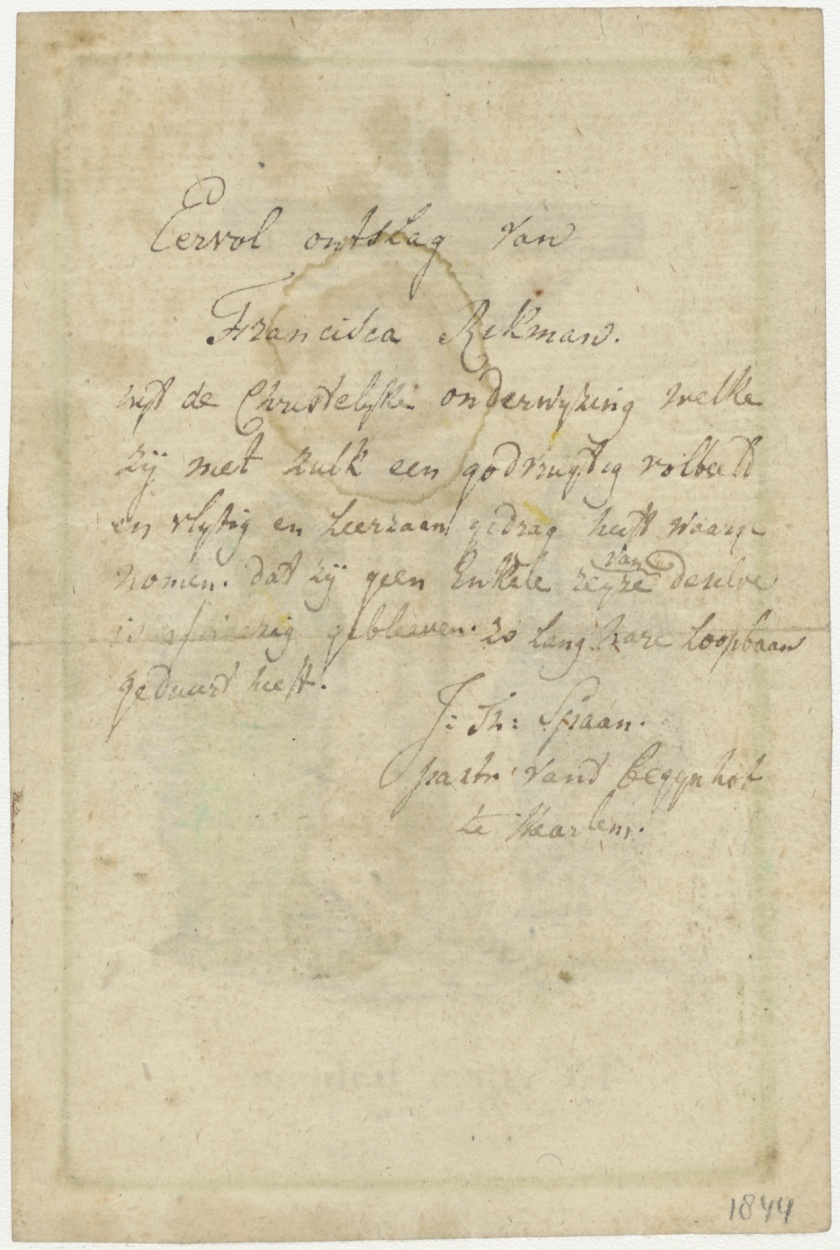 Eervol ontslag van
Francisca Rekman.
uyt de Christelyke onderwyzing welke
zij met zulk een godvrugtig volbeeld
en vlytig en leerzaam gedrag heeft waarge
nomen. dat zij geen Enkele reyze van deselve
is afwezig gebleeven. zo lang hare loopbaan
geduurt heeft.
J: Th: Spaan.
pastr vand Begynhof
te Haarlem.
1844